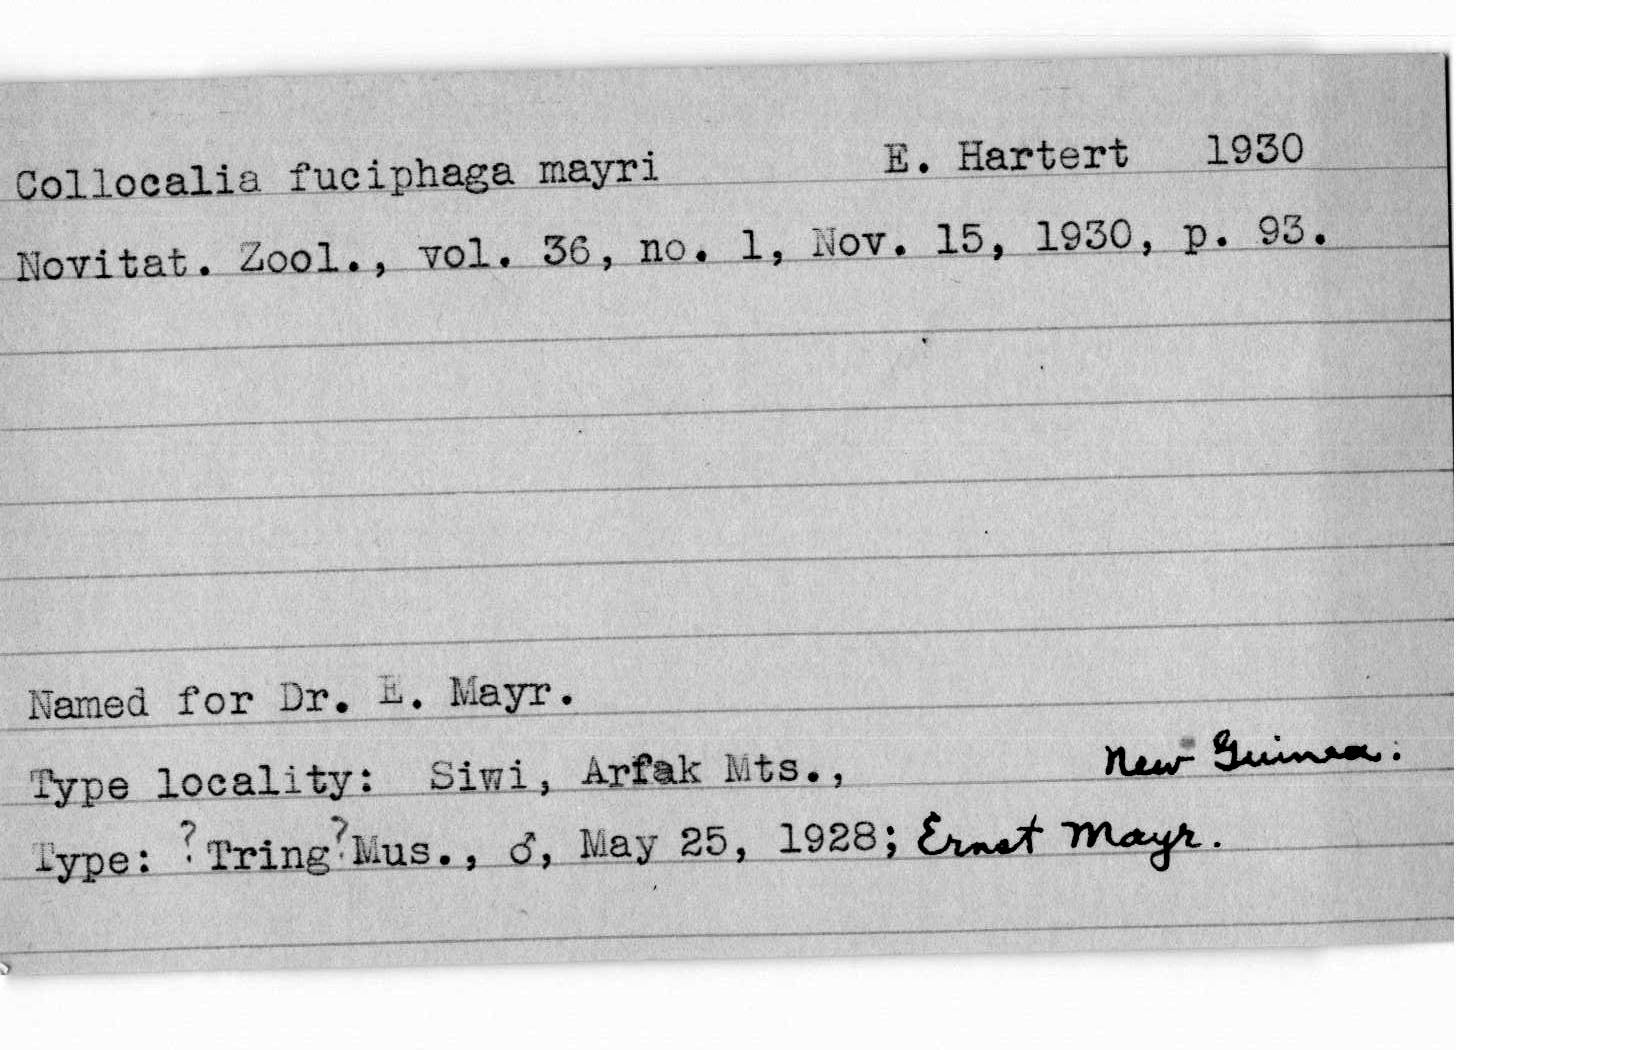 Collocalia fuciphaga mayri E. Hartert 1930
Novitat. Zool., vol. 36, no. 1, Nov. 15, 1930, p. 93.
Named for Dr. E. Mayr.
Type locality: Siwi, Arfak Mts., New Guinea.
Type: ?Tring? Mus., ♂, May 25, 1928; Ernst Mayr.